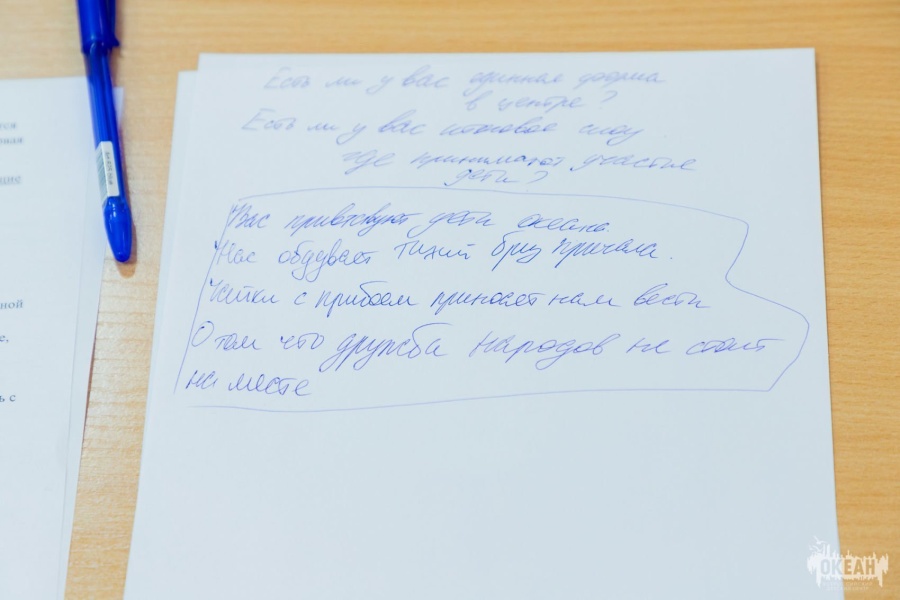 Есть ли у вас единная форма
в центре?
Есть ли у вас итоговое шоу
где принимают участие
дети?
Вас приветствуют дети океана.
Нас обдувает тихий бриз причала.
Чайки с прибоем приносят нам вести
О том что дружба народов не стоит
на месте
ОКЕАН